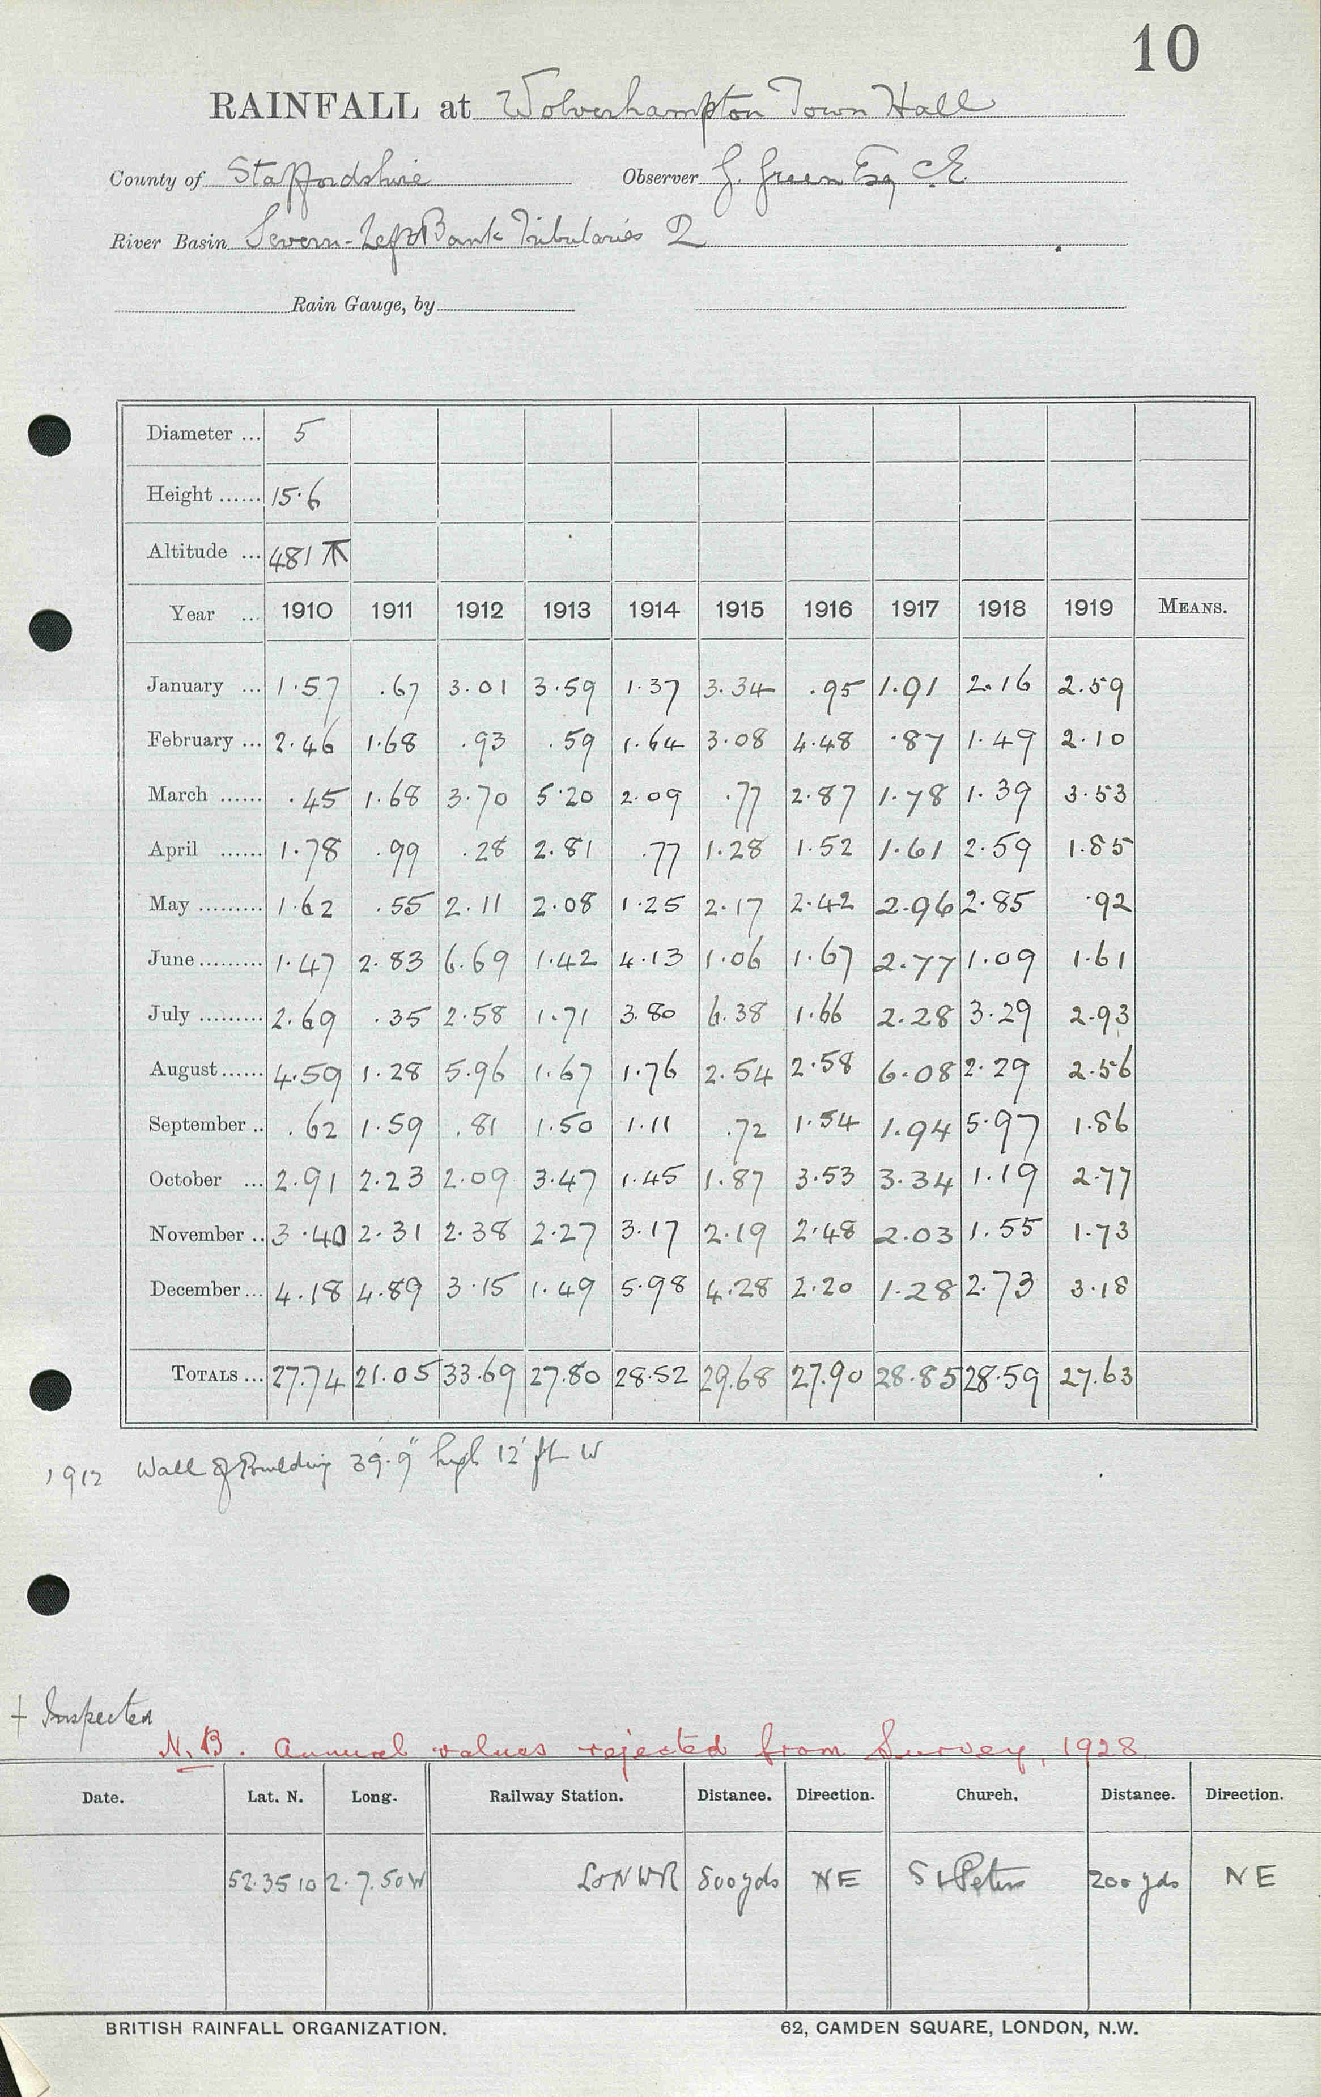 10
RAINFALL at Wolverhampton Town Hall
County of Staffordshire Observer G. Green Esq C.E.
River Basin Severn-Left Bank Tributaries 2
Rain Gauge, by
Diameter ... 5
Height ...... 15.6
Altitude ... 481
Year ... 1910 1911 1912 1913 1914 1915 1916 1917 1918 1919 MEANS.
January ... 1.57 .67 3.01 3.59 1.37 3.34 .95 1.91 2.16 2.59
February ... 2.46 1.68 .93 .59 1.64 3.08 4.48 .87 1.49 2.10
March ...... .45 1.68 3.70 5.20 2.09 .77 2.87 1.78 1.39 3.53
April ...... 1.78 .99 .28 2.81 .77 1.28 1.52 1.61 2.59 1.85
May ......... 1.62 .55 2.11 2.08 1.25 2.17 2.42 2.96 2.85 .92
June ......... 1.47 2.83 6.69 1.42 4.13 1.06 1.67 2.77 1.09 1.61
July ......... 2.69 .35 2.58 1.71 3.80 6.38 1.66 2.28 3.29 2.93
August...... 4.59 1.28 5.96 1.67 1.76 2.54 2.58 6.08 2.29 2.56
September .. .62 1.59 .81 1.50 1.11 .72 1.54 1.94 5.97 1.86
October ... 2.91 2.23 2.09 3.47 1.45 1.87 3.53 3.34 1.19 2.77
November .. 3.40 2.31 2.38 2.27 3.17 2.19 2.48 2.03 1.55 1.73
December... 4.18 4.89 3.15 1.49 5.98 4.28 2.20 1.28 2.73 3.18
TOTALS ... 27.74 21.05 33.69 27.80 28.52 29.68 27.90 28.85 28.59 27.63
1912 Wall of Building 39'.9" high 12' ft W
+ Inspected
N.B. Annual values rejected from Survey, 1928
Date. Lat. N. Long. Railway Station. Distance. Direction. Church. Distance. Direction.
52.35 10 2.7.50W L&NWR 800 yds NE St Peters 200 yds NE
BRITISH RAINFALL ORGANIZATION. 62, CAMDEN SQUARE, LONDON, N.W.